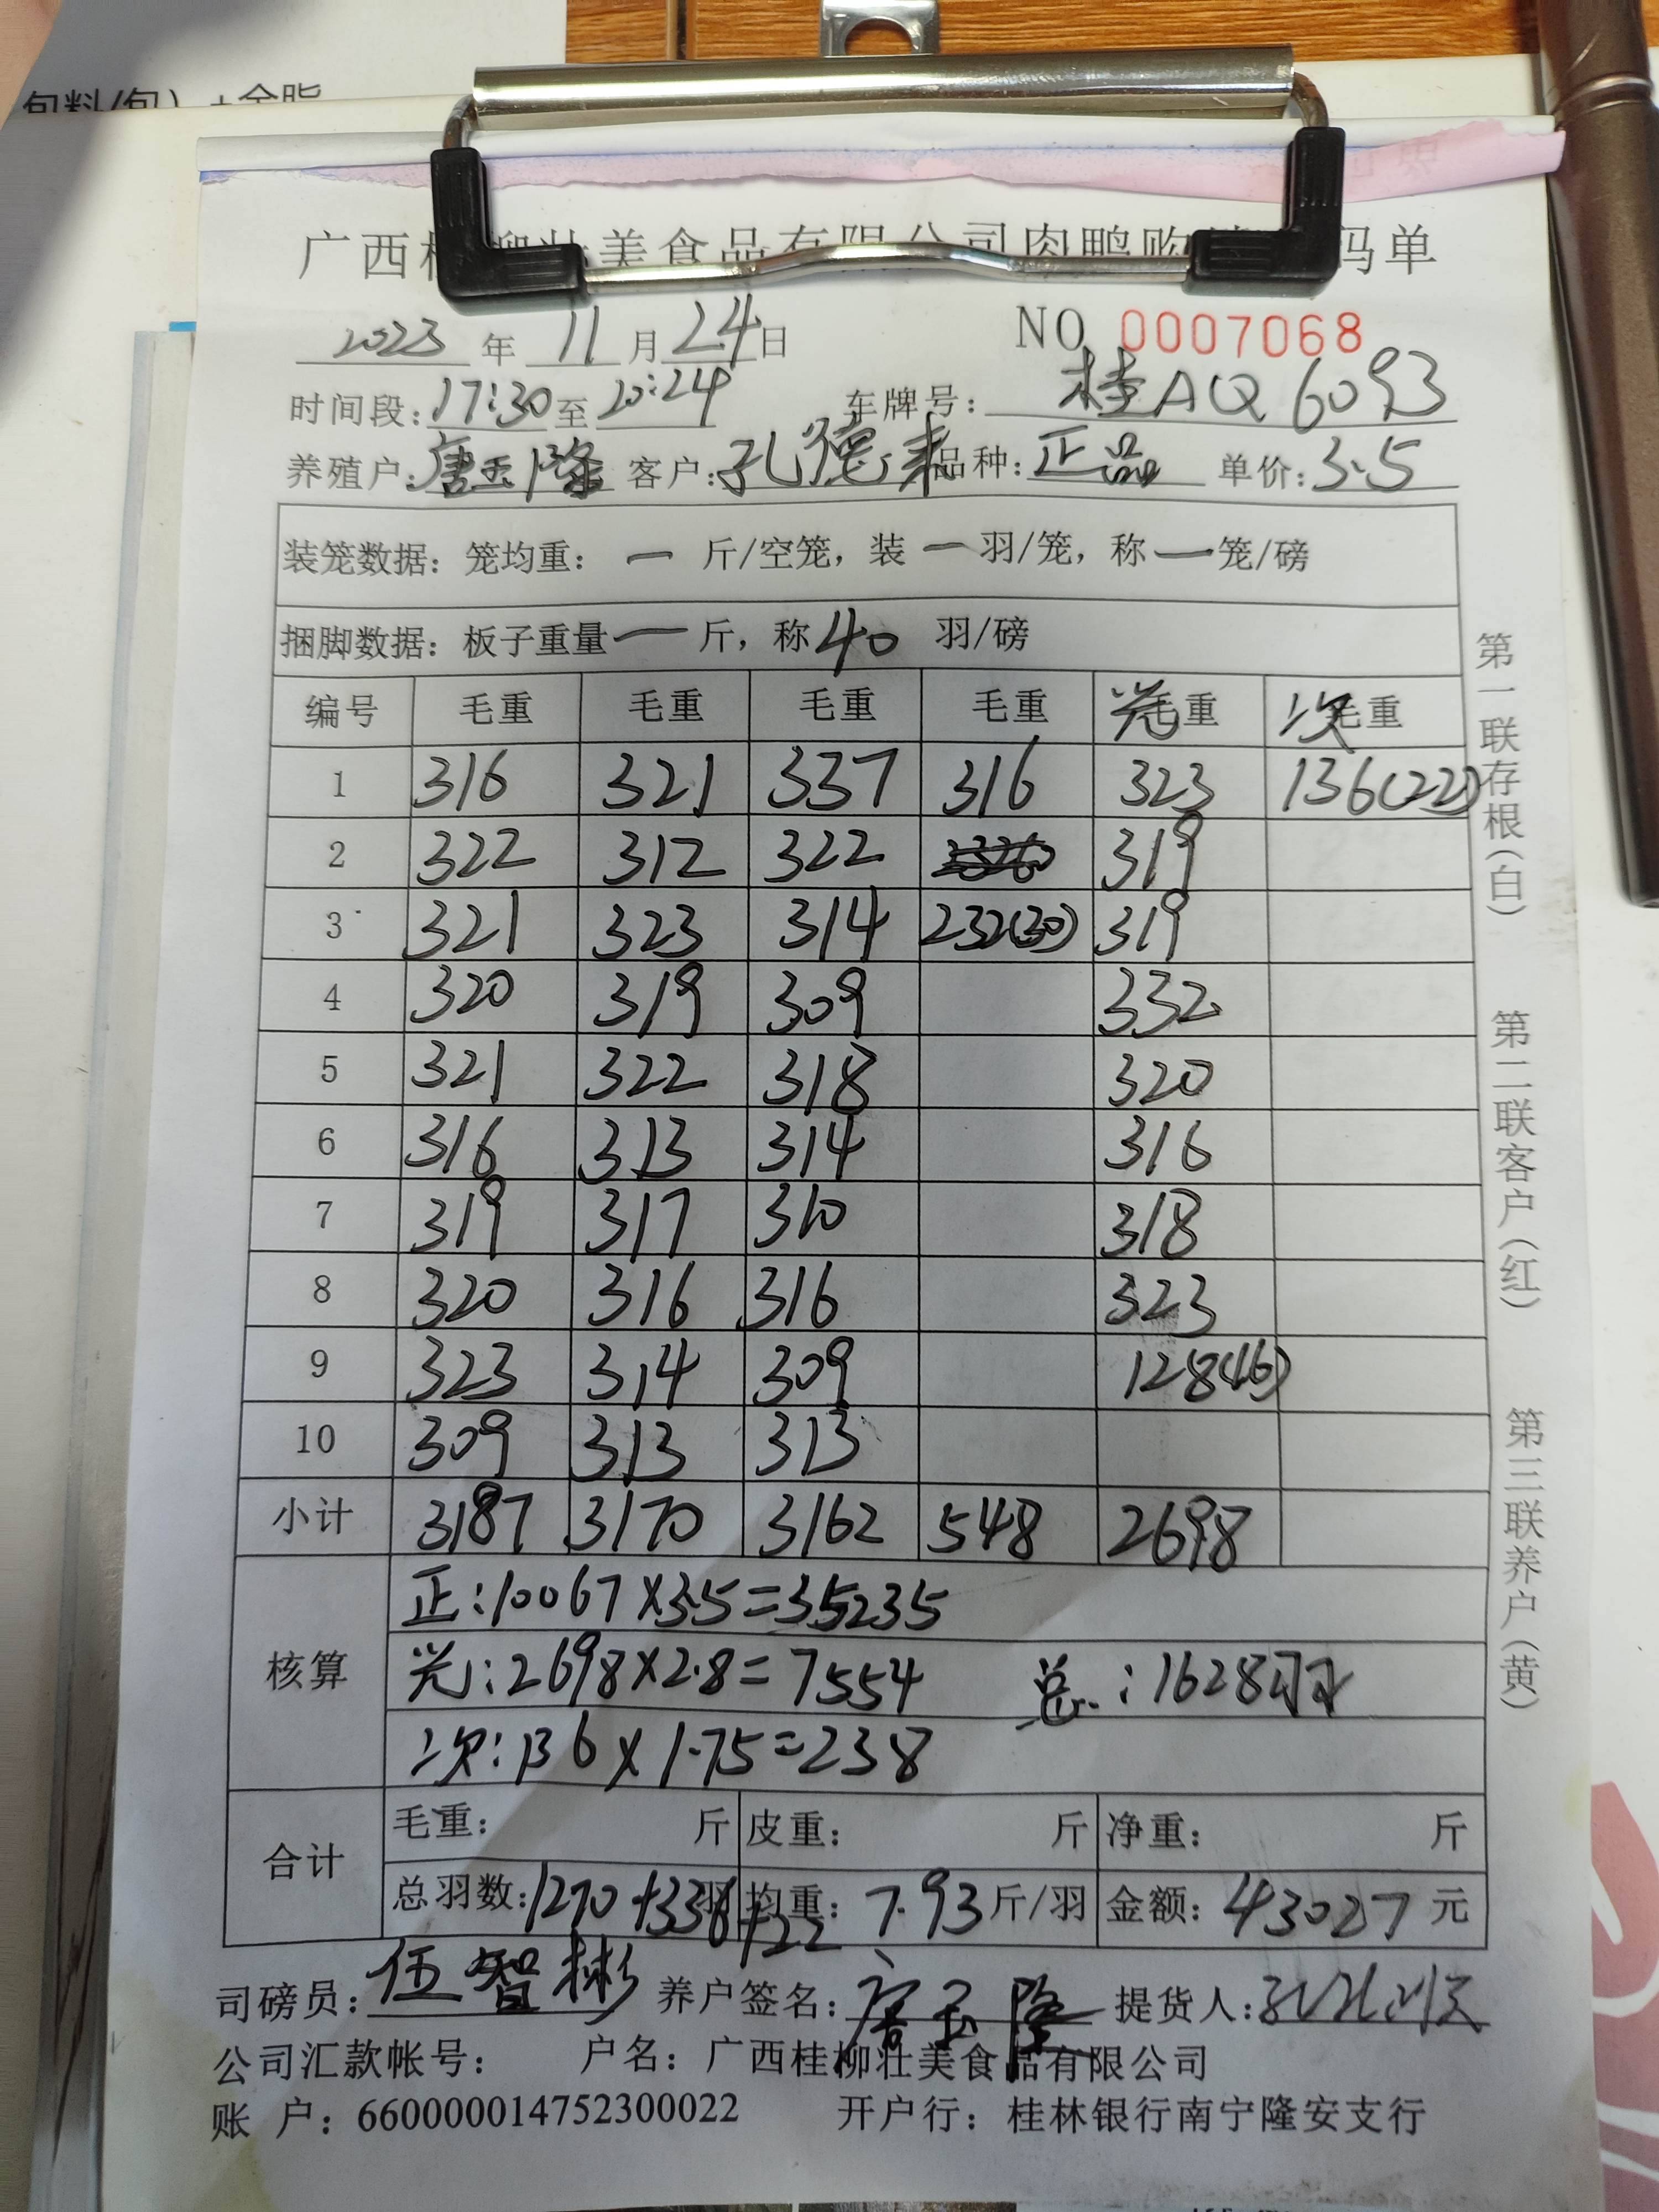 包料/包) +金脂
广西桂柳壮美食品有限公司肉鸭购 码单
2023 年 11 月 24 日 NO 0007068
时间段: 17:30 至 20:24 车牌号: 桂AQ6093
养殖户: 唐玉隆 客户: 孔德来 品种: 正品 单价: 3.5
装笼数据: 笼均重: 一 斤/空笼, 装 一 羽/笼, 称 一 笼/磅
捆脚数据: 板子重量 一 斤, 称 40 羽/磅
编号 毛重 毛重 毛重 毛重 光毛重 次毛重
1 316 321 337 316 323 136(22)
2 322 312 322 319
3 321 323 314 232(30) 319
4 320 319 309 332
5 321 322 318 320
6 316 313 314 316
7 319 317 310 318
8 320 316 316 323
9 323 314 309 128(16)
10 309 313 313
小计 3187 3170 3162 548 2698
核算
正:10067×3.5=35235
光:2698×2.8=7554 总:1628羽
次:136×1.75=238
合计
毛重: 斤 皮重: 斤 净重: 斤
总羽数: 1270+336+22 羽 均重: 7.93 斤/羽 金额: 43027 元
司磅员: 伍智彬 养户签名: 唐玉隆 提货人:
公司汇款帐号: 户名: 广西桂柳壮美食品有限公司
账 户: 660000014752300022 开户行: 桂林银行南宁隆安支行
第一联存根(白)
第二联客户(红)
第三联养户(黄)